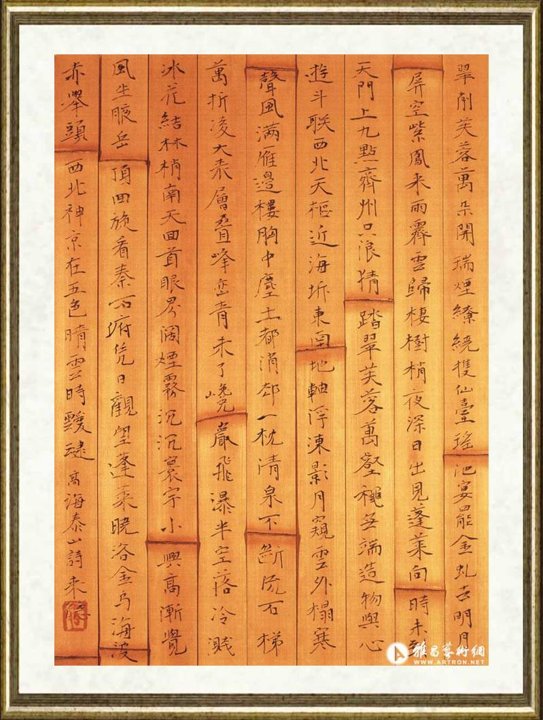 翠削芙蓉萬朵開瑞煙繚繞擁仙臺瑤池宴罷金虬去明月
屏空紫鳳來雨霽雲歸棲樹梢夜深日出見蓬萊向時未
天門上九點齊州只浪猜踏翠芙蓉萬壑穐無端造物與心
遊斗聯西北天樞近海坼東南地軸浮凍影月窺雲外榻寒
聲風滿雁邊樓胸中塵土都消却一枕清泉不斷流石梯
萬折凌大泰層疊峰巒青未了巉巖飛瀑半空落冷濺
冰花結林梢南天回首眼界闊煙霧沉沉寰宇小興高漸覺
風生腋岳頂回旋看秦西府凭日觀望蓬萊曉浴金烏海波
赤舉頭西北神京在五色晴雲時靉靆 高海泰山詩來
雅昌藝術網
WWW.ARTRON.NET